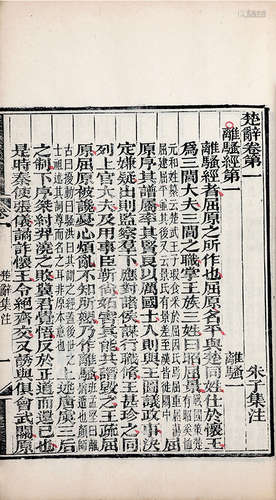 楚辭卷第一
朱子集注
離騷經第一
離騷一
離騷經者屈原之所作也屈原名平與楚同姓仕於懷王
為三閭大夫三閭之職掌王族三姓曰昭屈景
原序其譜屬率其賢良以厲國士入則與王圖議政事決
定嫌疑出則監察羣下應對諸侯謀行職修王甚珍之同
列上官大夫及用事臣靳尚妬害其能共譖毀之王疏屈
原屈原被讒憂心煩亂不知所愬乃作離騷
上述唐虞三后
之制下序桀紂羿澆之敗冀君覺悟反於正道而還己也
是時秦使張儀譎詐懷王令絕齊交又誘與俱會武關原
卷一
楚辭集注